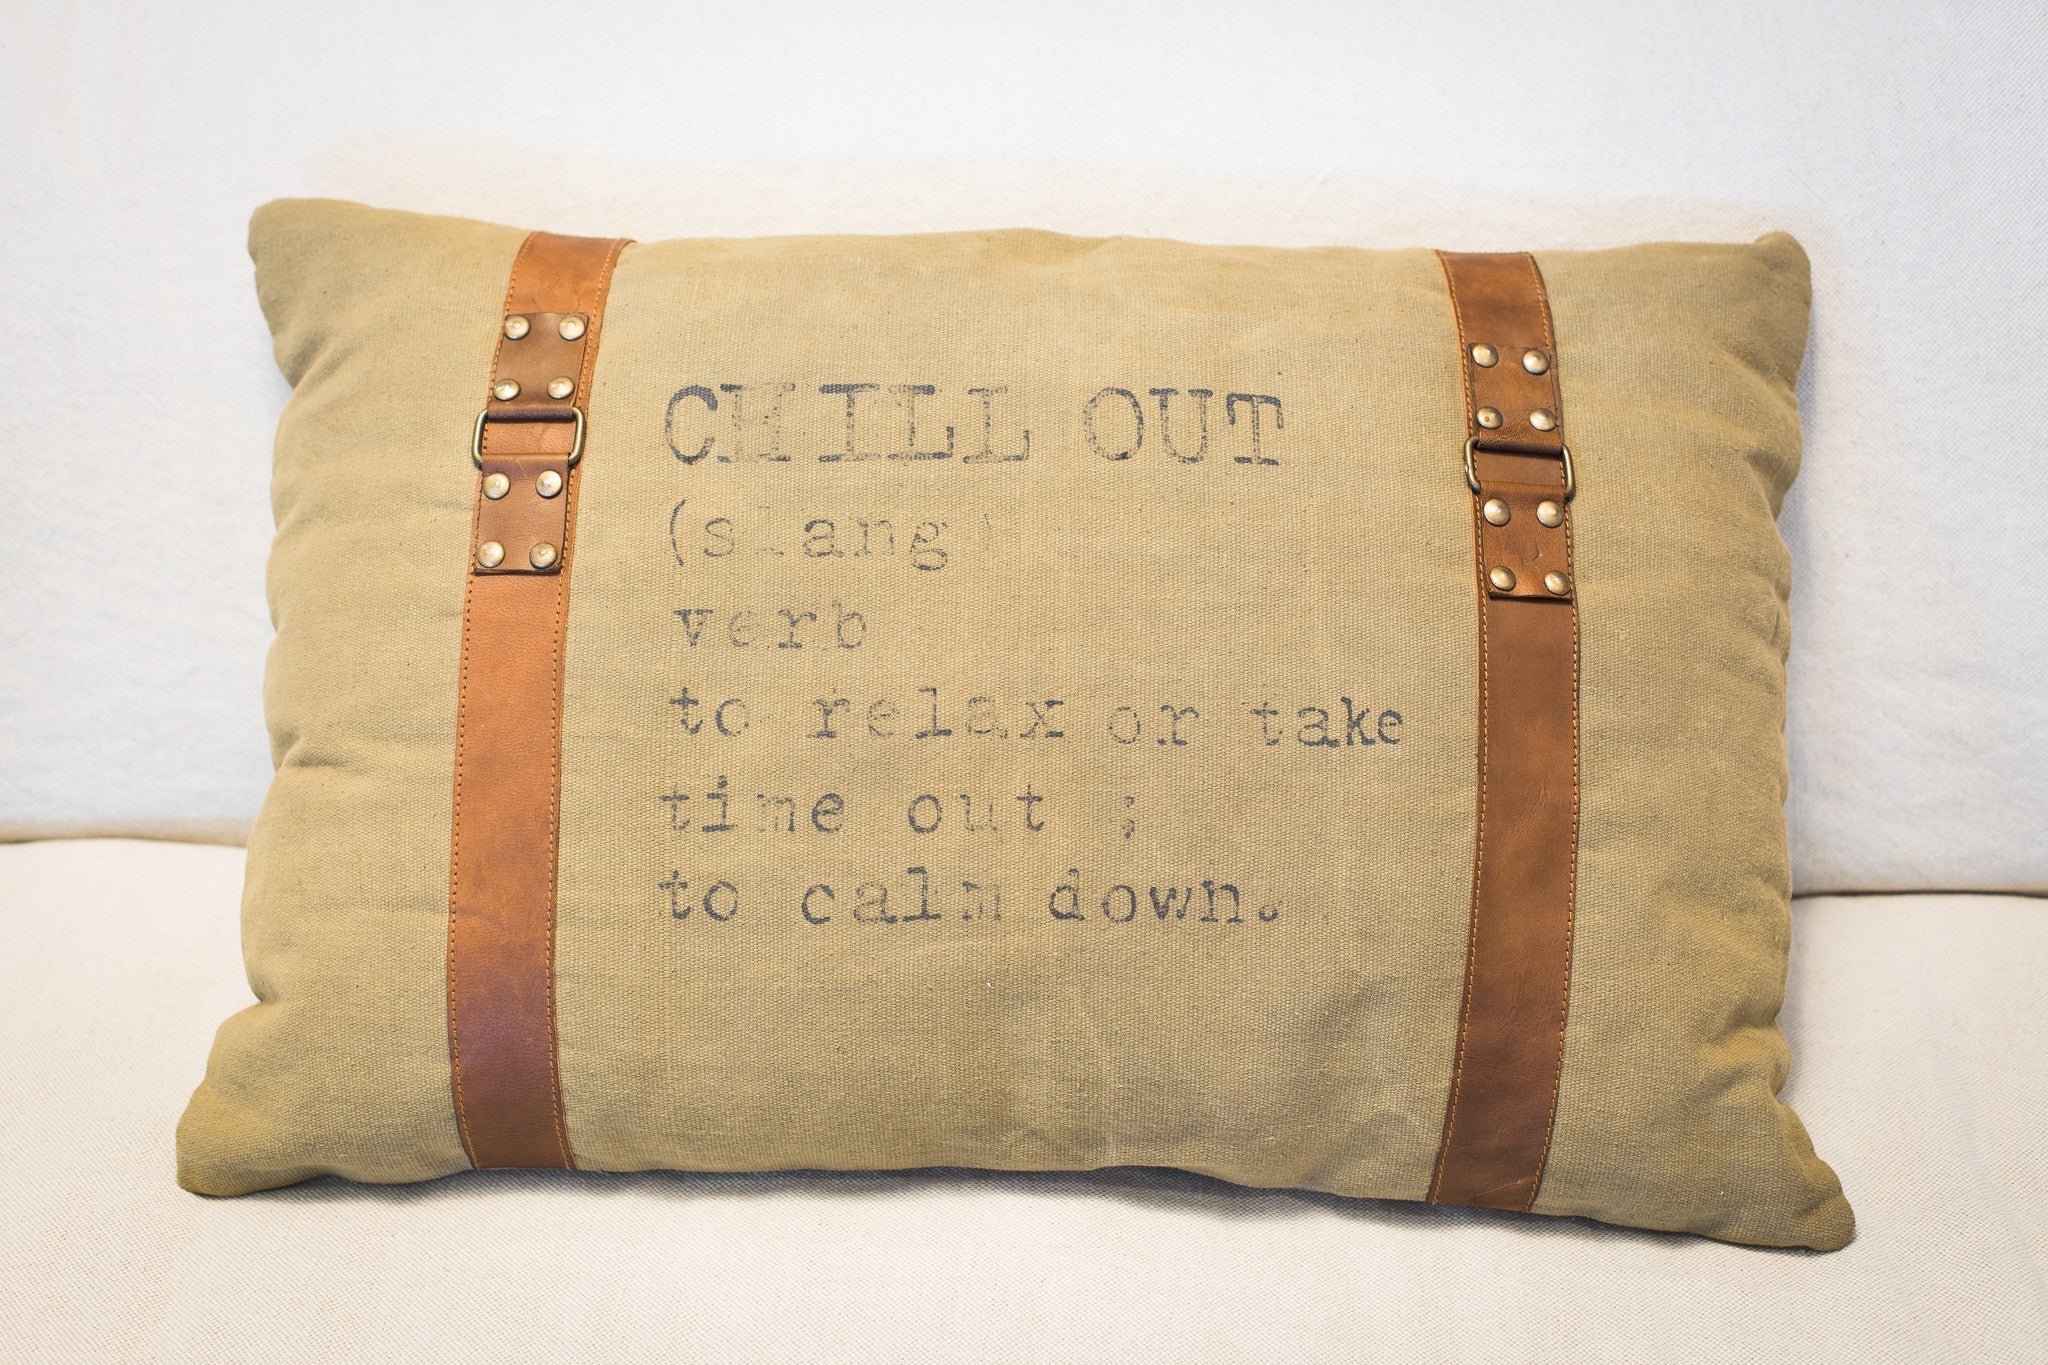 CHILL OUT
(slang)
verb
to relax or take
time out ;
to calm down.